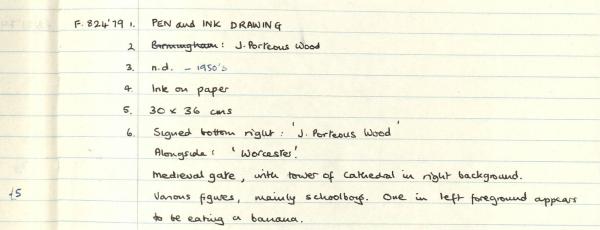 F. 824'79 1. PEN and INK DRAWING
2. Birmingham: J. Porteous Wood
3. n.d. - 1950's
4. Ink on paper
5. 30 x 36 cms
6. Signed bottom right: 'J. Porteous Wood'
Alongside: 'Worcester'.
Medieval gate, with tower of Cathedral in right background.
Various figures, mainly schoolboys. One in left foreground appears
to be eating a banana.